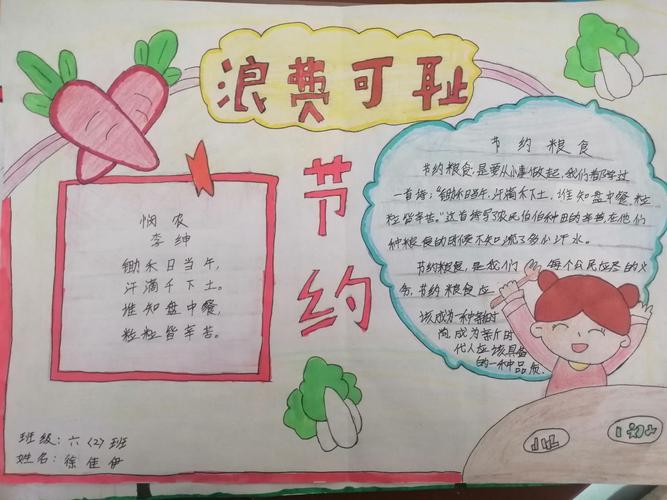 浪费可耻
节约
悯农
李绅
锄禾日当午,
汗滴禾下土。
谁知盘中餐,
粒粒皆辛苦。
节约粮食
节约粮食,是要从小事做起,我们都学过
一首诗:“锄禾日当午,汗滴禾下土,谁知盘中餐,粒
粒皆辛苦。”这首诗写农民伯伯种田的辛苦,在他们
种粮食的时候不知流了多少汗水。
节约粮食,是我们 每个公民应尽的义
务,节约粮食应
该成为一种新时
尚,成为新时
代人应该具备
的一种品质.
班级:六(2)班
姓名:徐佳伊